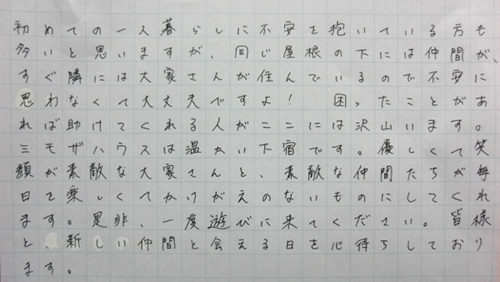 初めての一人暮らしに不安を抱いている方も
多いと思いますが、同じ屋根の下には仲間が、
すぐ隣には大家さんが住んでいるので不安に
思わなくて大丈夫ですよ！　困ったことがあ
れば助けてくれる人がここには沢山います。
ミモザハウスは温かい下宿です。優しくて笑
顔が素敵な大家さんと、素敵な仲間たちが毎
日を楽しくてかけがえのないものにしてくれ
ます。是非、一度遊びに来てください。皆様
と、新しい仲間と会える日を心待ちしており
ます。